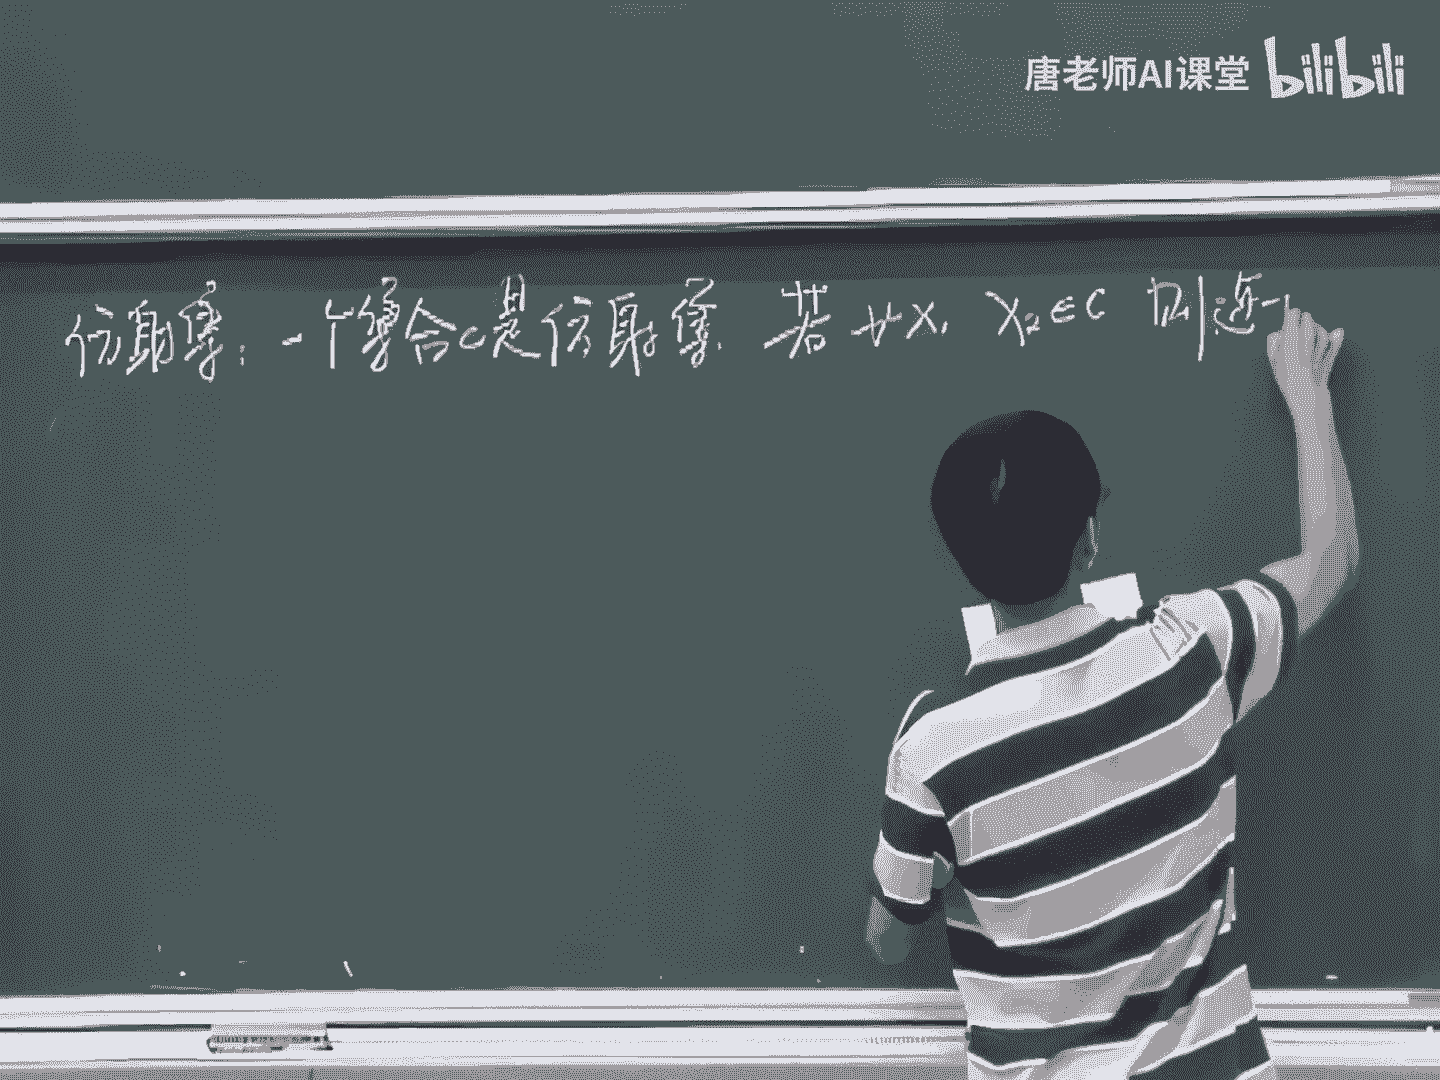 唐老师AI课堂 bilibili
仿射集：一个集合C是仿射集 若 ∀ x₁ x₂ ∈ C 则连